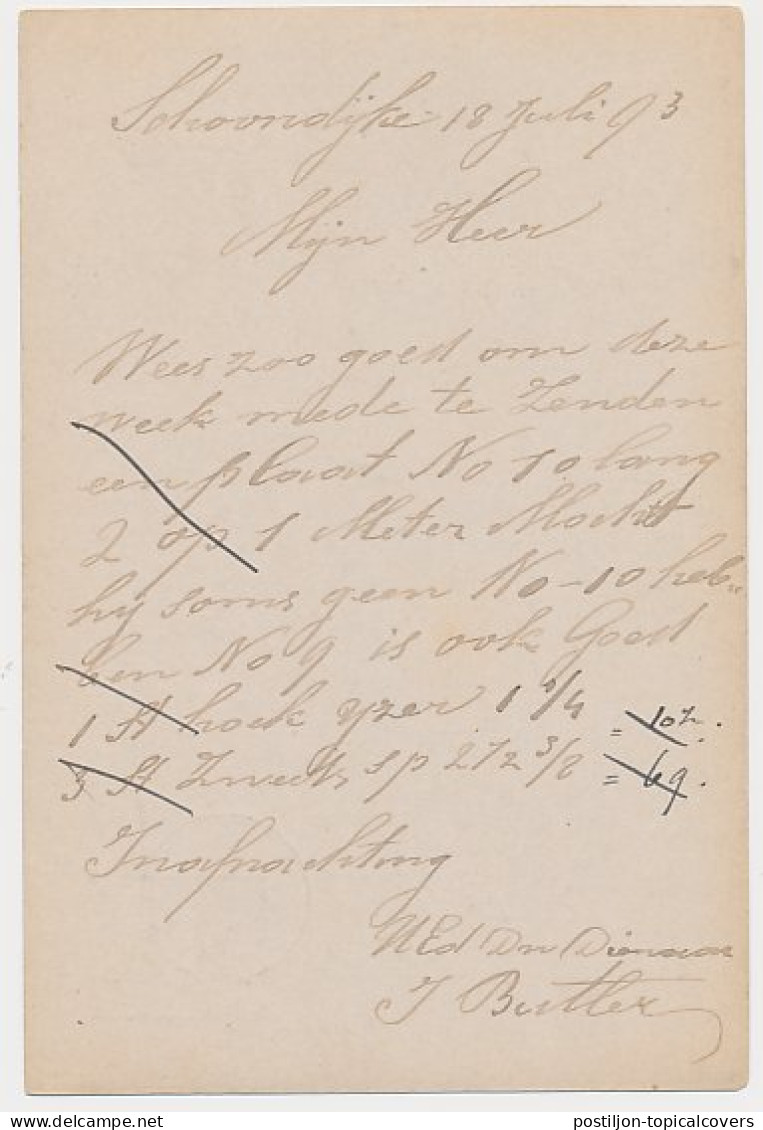 Schoondijke 18 Juli 93
Mijn Heer
Wees zoo goed om deze
week mede te Zenden
een plaat No 10 lang
2 op 1 Meter Mocht
hij soms geen No-10 heb„
ben No 9 is ook Goed
1 St hoek yzer 1 1/4 = 10
3 St Zweeds sp 2 1/2 3/8 = 69.
Inafwachting
UEd Dn Dienaar
J Butler
postiljon-topicalcovers